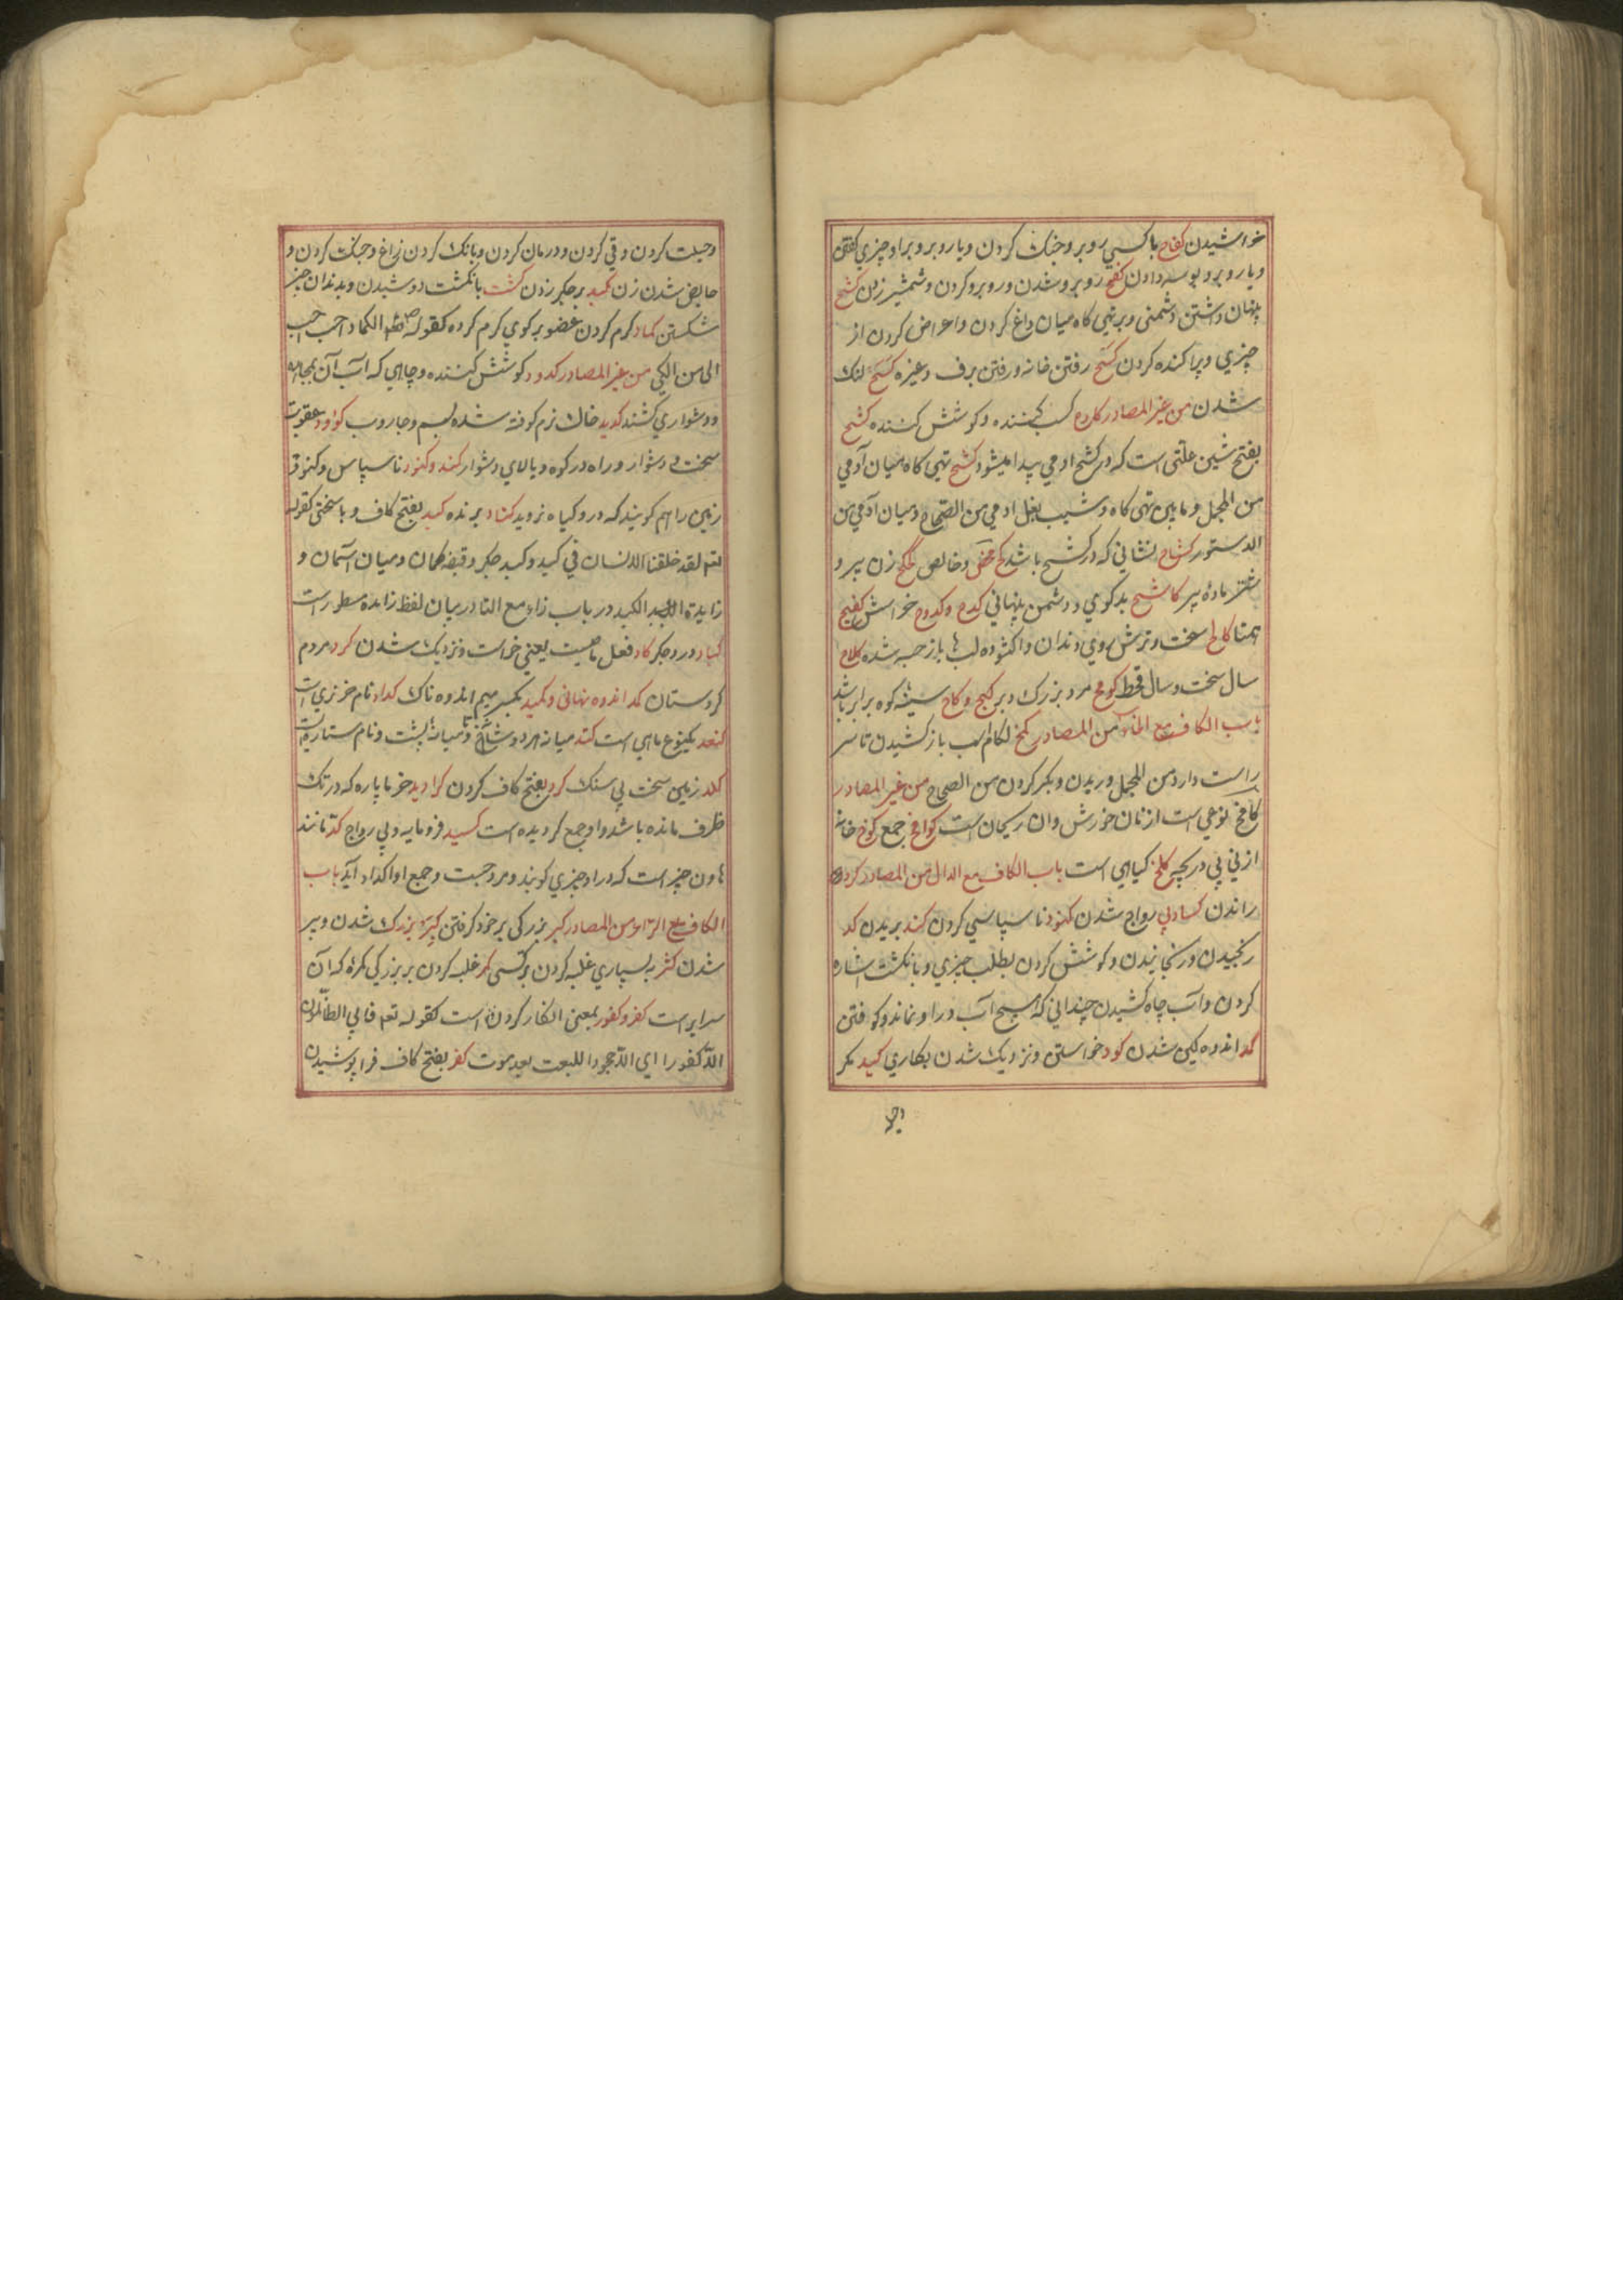 خراشیدن کفاح با کسی روبرو جنک کردن و یا روبرو برا و چیزی کفتن
و یا روبرو بوسه دادن کفح روبرو شدن و روبرو کردن و شمشیر زدن کشح
پنهان داشتن دشمنی و بر تهی کاه میان داغ کردن و اعراض کردن از
چیزی و پراکنده کردن کسح رفتن خانه و رفتن برف و غیره کسح لنک
شدن من غیر المصادر کادح کسب کننده و کوشش کننده کشح
بفتح شین علتی است که در کشح ادمی پیدا میشود کشح تهی کاه میان آدمی
من المجمل و مابین تهی کاه و شیب بغل ادمی من الصحاح و میان آدمی من
الدستور کشاح نشانی که در کشح باشد کح محض و خالص کحکح زن پیر و
شتر مادهٔ پیر کاشح بدکوی و دشمن پنهانی کدح و کدوح خراش کفیح
همتا کالح سخت و ترش روی و دندان واکشوده لب ها باز جسته شده کلاح
سال سخت و سال قحط کومح مرد بزرک دبر کیح و کاح سینهٔ کوه برابر باشد
باب الکاف مع الخاء من المصادر کمخ لکام اسب باز کشیدن تا سر
راست دارد من المجمل و ریدن و تکبر کردن من الصحاح من غیر المصادر
کامخ نوعی است از نان خورش و ان ریحان است کوامخ جمع کوخ خانه
از نی بی دریچه کلخ کیاهی است باب الکاف مع الدال من المصادر کرد
راندن کساد بی رواج شدن کنود ناسپاسی کردن کند بریدن کد
رنجیدن و رنجانیدن و کوشش کردن بطلب چیزی و بانکشت اشاره
کردن و آب چاه کشیدن چندانی که هیچ آب درا و نماند و کوفتن
کمد اندوه کین شدن کود خواستن و نزدیک شدن بکاری کید مکر
و حیلت کردن و قی کردن و درمان کردن و بانک کردن زاغ و جنک کردن و
حایض شدن زن کبد بر جکر زدن کشت بانکشت دوشیدن و بدندان چیز
شکستن کماد کرم کردن عضو بر کوی کرم کرده کقوله الکماد احب
الی من الکی من غیر المصادر کدود کوشش کننده و چاهی که آب آن
و دشواری کشند کدید خاک نرم کوفته شده بسم و جاروب کؤود عقوبت
سخت و دشوار و راه در کوه و بالای دشوار کند و کنود ناسپاس و کنود
زمین را هم کویند که درو کیاه نروید کناد برنده کبد بفتح کاف و با سختی کقوله
تعم لقد خلقنا الانسان فی کبد و کبد جکر و قبضه کمان و میان آسمان و
زایدة الکبد در باب زاء مع التا در بیان لفظ زایده مسطور است
کباد درد جکر کاد فعل ماضیست یعنی خواست و نزدیک شدن کرد مردم
کردستان کمد اندوه نهانی و کمید بکسر میم اندوه ناک کداد نام خر نری است
کنعد یکنوع ماهی است کتد میانه هر دو شانه و میانهٔ پشت و نام ستاره است
کلد زمین سخت بی سنک کرد بفتح کاف کردن کرادید خرما پاره که در تک
ظرف مانده باشد و او جمع کردیده است کسید فرومایه و بی رواج کد مانند
هاون چیز است که درا و چیزی کوبند و مرد چست و جمع او اکداد آید باب
الکاف مع الراء من المصادر کبر بزرکی بر خود کرفتن کبر بزرک شدن و پیر
شدن کثر به بسیاری غلبه کردن بر کسی کمر غلبه کردن بر بزرکی کمره که آن
سرایر است کفر و کفور بمعنی انکار کردن است کقوله تعم فابی الظالمون
الا کفورا ای الا جحودا للبعث بعد موت کفر بفتح کاف فراپوشیدن